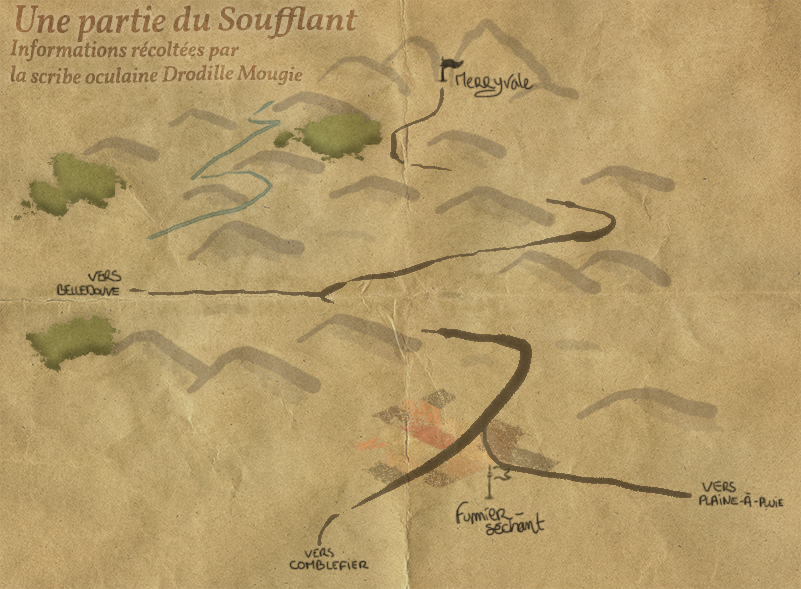 Une partie du Soufflant
Informations récoltées par
la scribe oculaine Drodille Mougie
Merryvale
VERS
BELLEDOUVE
VERS
PLAINE-À-PLUIE
Fumier-
séchant
VERS
COMBLEFIER